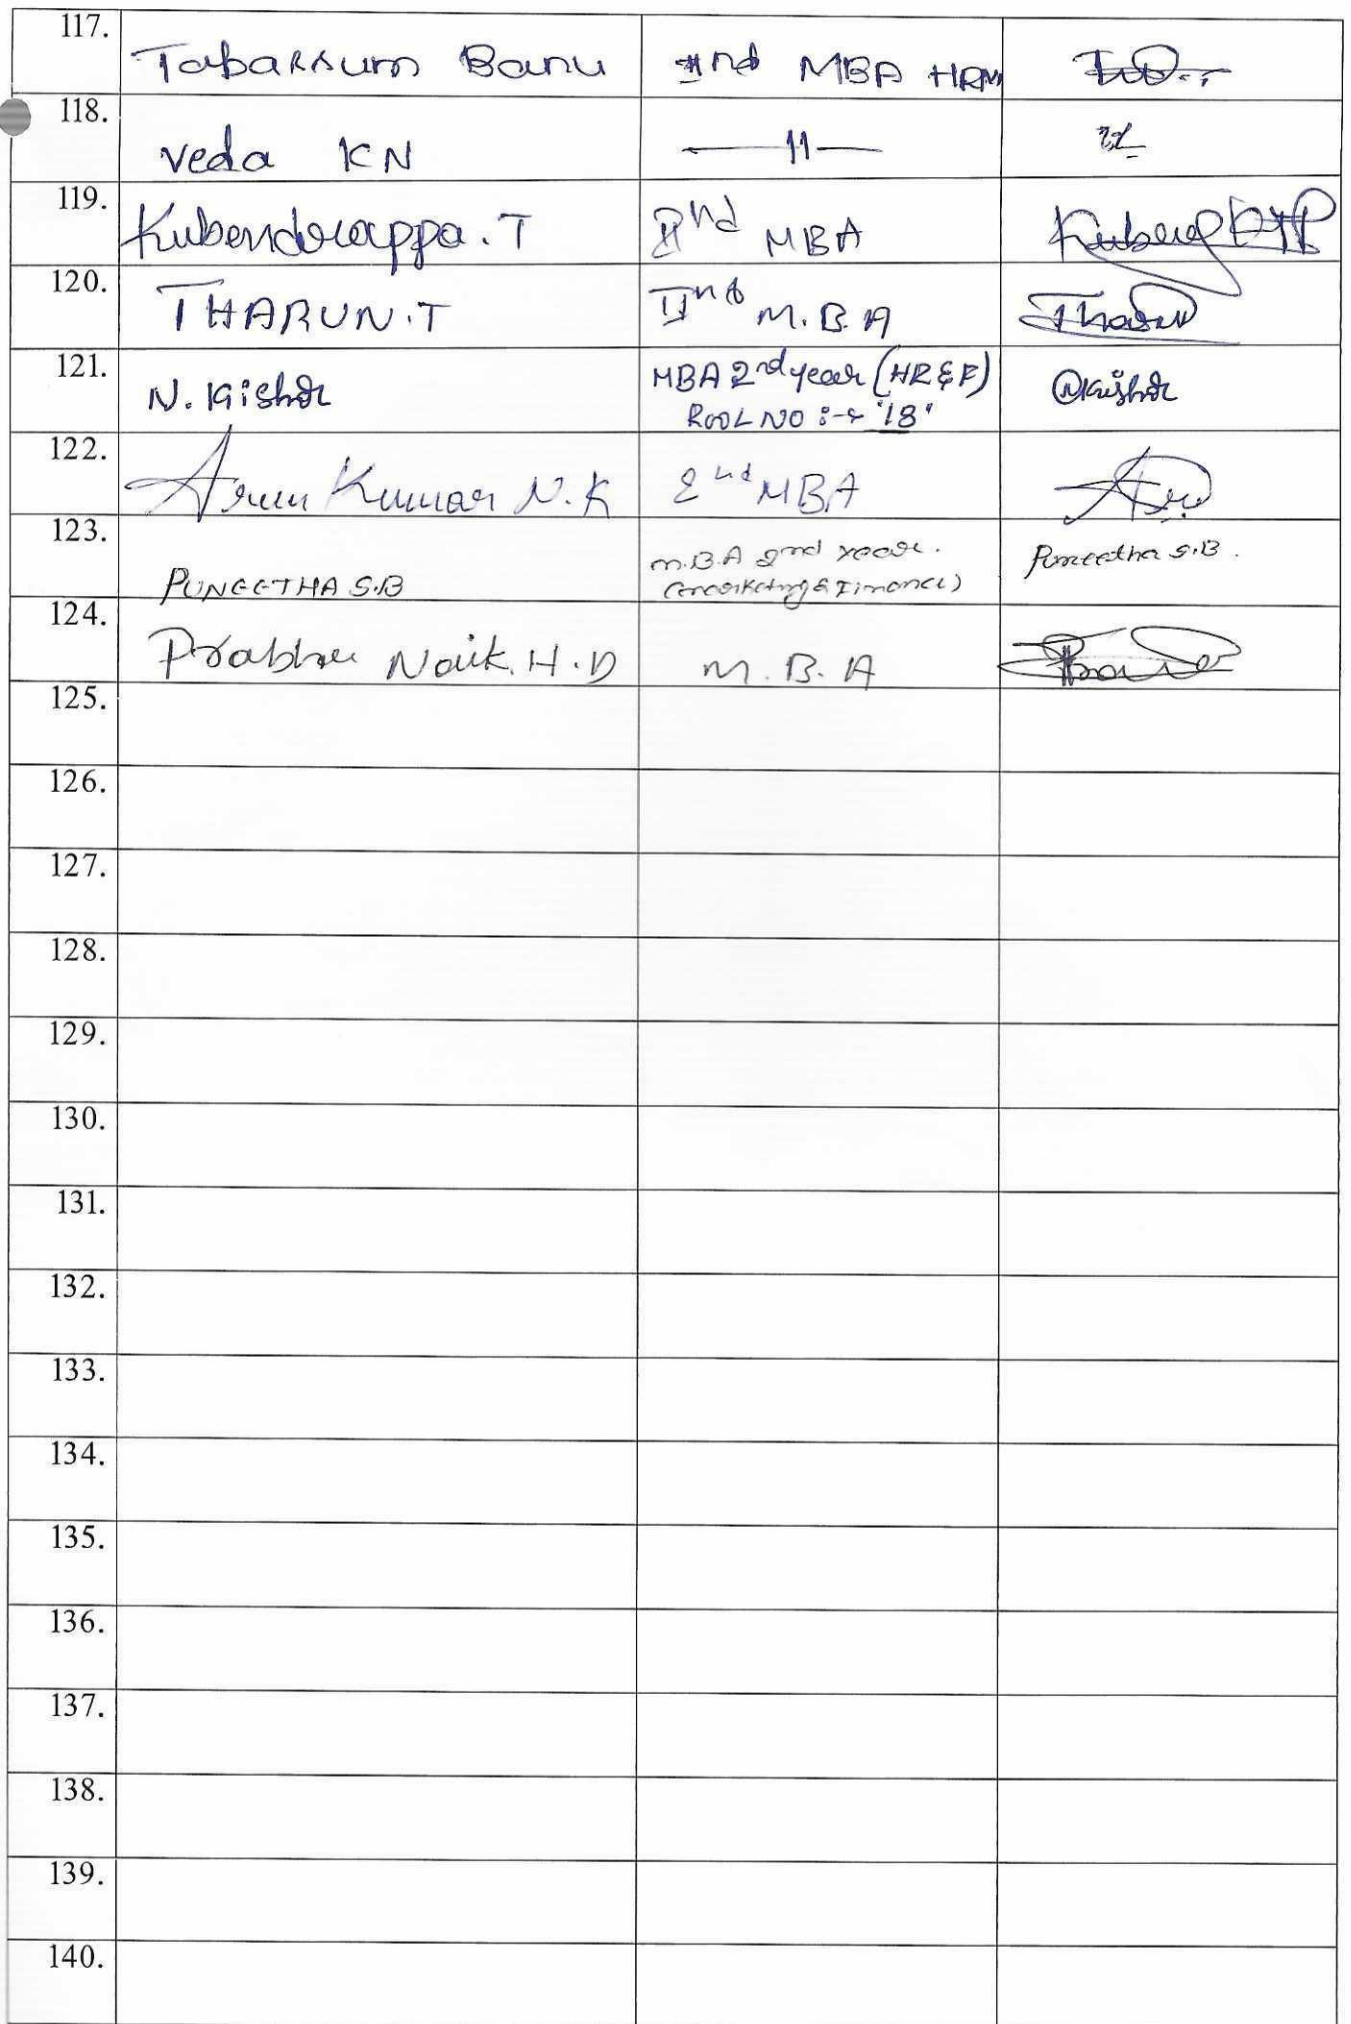 117. Tabassum Banu IInd MBA HRM
118. Veda KN —11—
119. Kubendrappa.T IInd MBA
120. THARUN.T IInd M.B.A
121. N. Kishor MBA 2nd year (HR & F) @Kishor
ROOL NO :- "18"
122. Arun Kumar N.K 2nd MBA
123. PUNEETHA S.B M.B.A 2nd year. Puneetha S.B.
(Marketing & Finance)
124. Prabhu Naik.H.D M.B.A
125.
126.
127.
128.
129.
130.
131.
132.
133.
134.
135.
136.
137.
138.
139.
140.